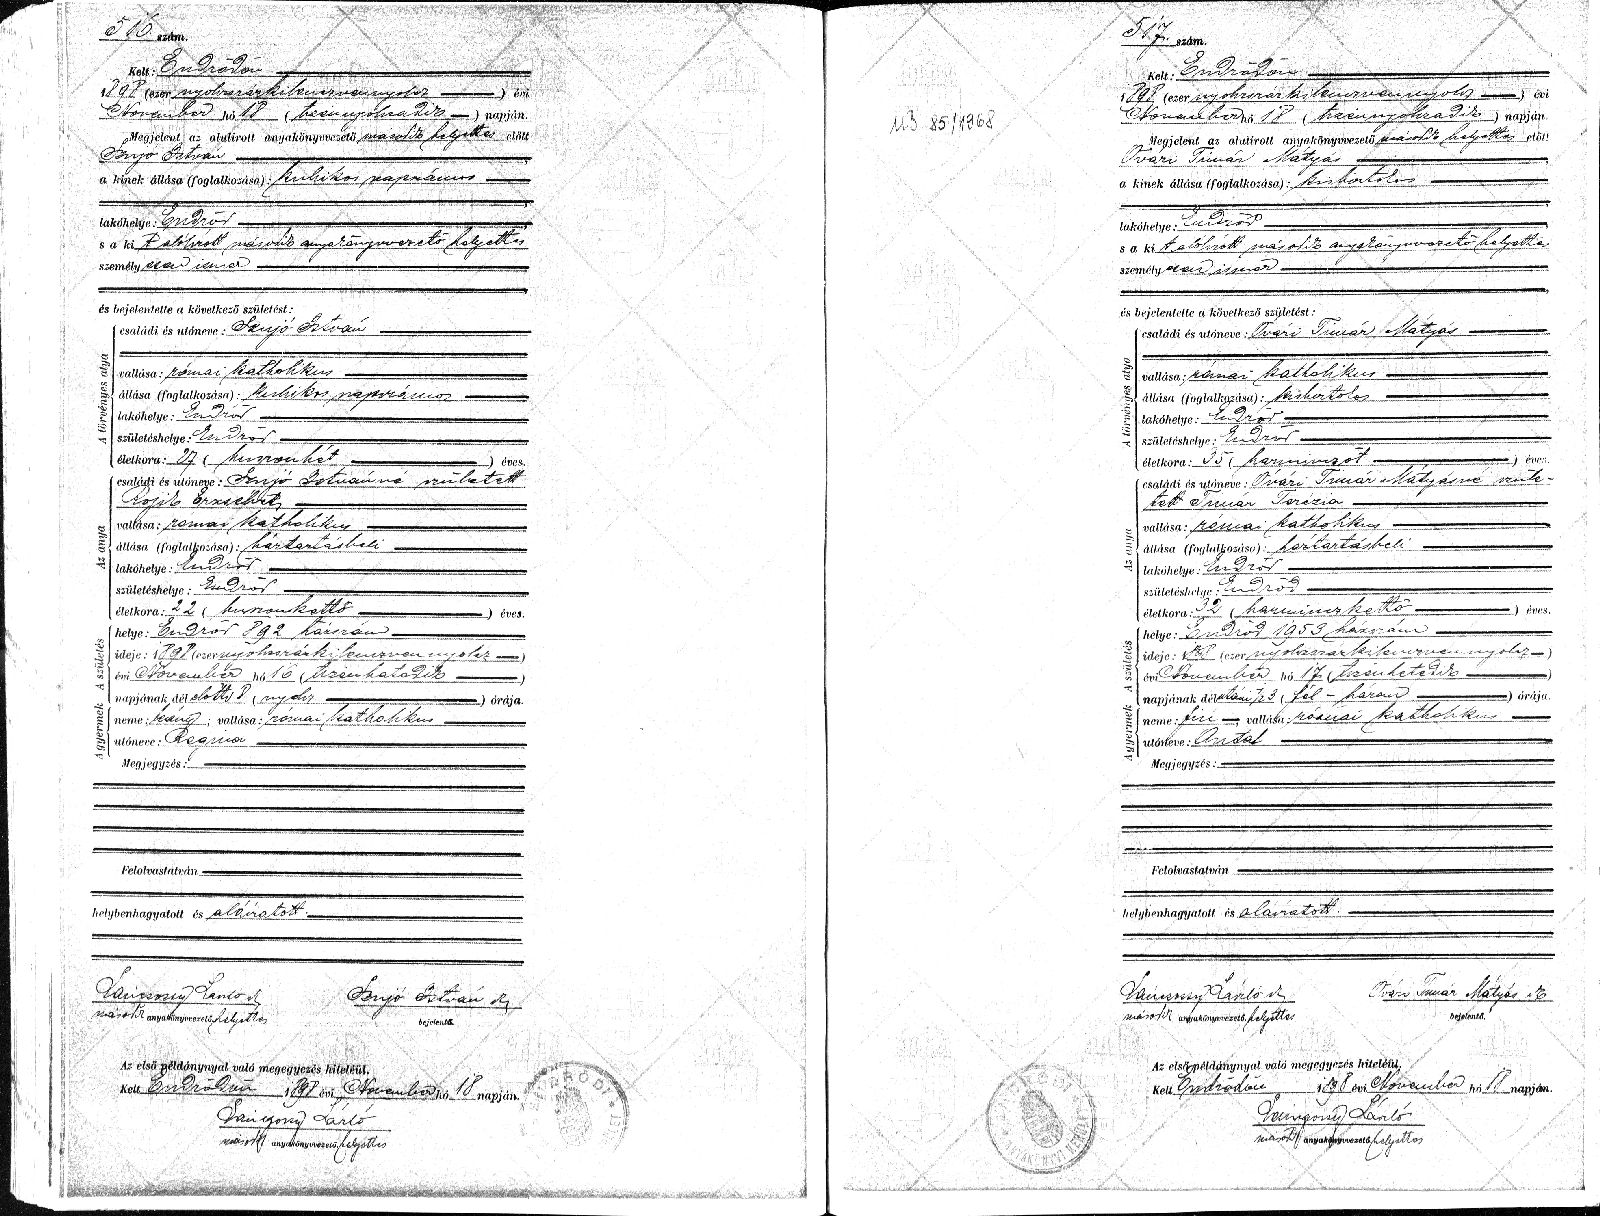 516. szám.
Kelt: Endrődön
1898 (ezer nyolczszázkilenczvennyolcz) évi
November hó 18 (tizennyolczadik) napján.
Megjelent az alulirott anyakönyvvezető második helyettes előtt
István
a kinek állása (foglalkozása): kubikos napszámos
lakóhelye: Endrőd
s a kit alólirott második anyakönyvvezető helyettes
személyesen ismer
és bejelentette a következő születést:
A törvényes atya
családi és utóneve: István
vallása: római katholikus
állása (foglalkozása): kubikos napszámos
lakóhelye: Endrőd
születéshelye: Endrőd
életkora: 27 (huszonhét) éves.
Az anya
családi és utóneve: Istvánné született
Erzsébet
vallása: római katholikus
állása (foglalkozása): háztartásbeli
lakóhelye: Endrőd
születéshelye: Endrőd
életkora: 22 (huszonkettő) éves.
A gyermek A születés
helye: Endrőd 892 házszám
ideje: 1898 (ezer nyolczszázkilenczvennyolcz)
évi November hó 16 (tizenhatodik)
napjának délelőtti 8 (nyolcz) órája.
neme: leány; vallása: római katholikus
utóneve: Regina
Megjegyzés:
Felolvastatván
helybenhagyatott és aláiratott.
László
második anyakönyvvezető helyettes
István
bejelentő.
Az első példánynyal való megegyezés hiteléül.
Kelt Endrődön 1898 évi November hó 18 napján.
László
második anyakönyvvezető helyettes
M3 85/1968
517. szám.
Kelt: Endrődön
1898 (ezer nyolczszázkilenczvennyolcz) évi
November hó 18 (tizennyolczadik) napján.
Megjelent az alulirott anyakönyvvezető második helyettes előtt
Ovari Timár Mátyás
a kinek állása (foglalkozása): kisbirtokos
lakóhelye: Endrőd
s a kit alólirott második anyakönyvvezető helyettes
személyesen ismer
és bejelentette a következő születést:
A törvényes atya
családi és utóneve: Ovari Timár Mátyás
vallása: római katholikus
állása (foglalkozása): kisbirtokos
lakóhelye: Endrőd
születéshelye: Endrőd
életkora: 35 (harminczöt) éves.
Az anya
családi és utóneve: Ovari Timár Mátyásné szüle-
tett Timár Terézia
vallása: római katholikus
állása (foglalkozása): háztartásbeli
lakóhelye: Endrőd
születéshelye: Endrőd
életkora: 32 (harminczkettő) éves.
A gyermek A születés
helye: Endrőd 1953 házszám
ideje: 1898 (ezer nyolczszázkilenczvennyolcz)
évi November hó 17 (tizenhetedik)
napjának délutáni ½3 (fél-három) órája.
neme: fiu; vallása: római katholikus
utóneve: Antal
Megjegyzés:
Felolvastatván
helybenhagyatott és aláiratott.
László
második anyakönyvvezető helyettes
Ovári Timár Mátyás
bejelentő.
Az első példánynyal való megegyezés hiteléül.
Kelt Endrődön 1898 évi November hó 18 napján.
László
második anyakönyvvezető helyettes